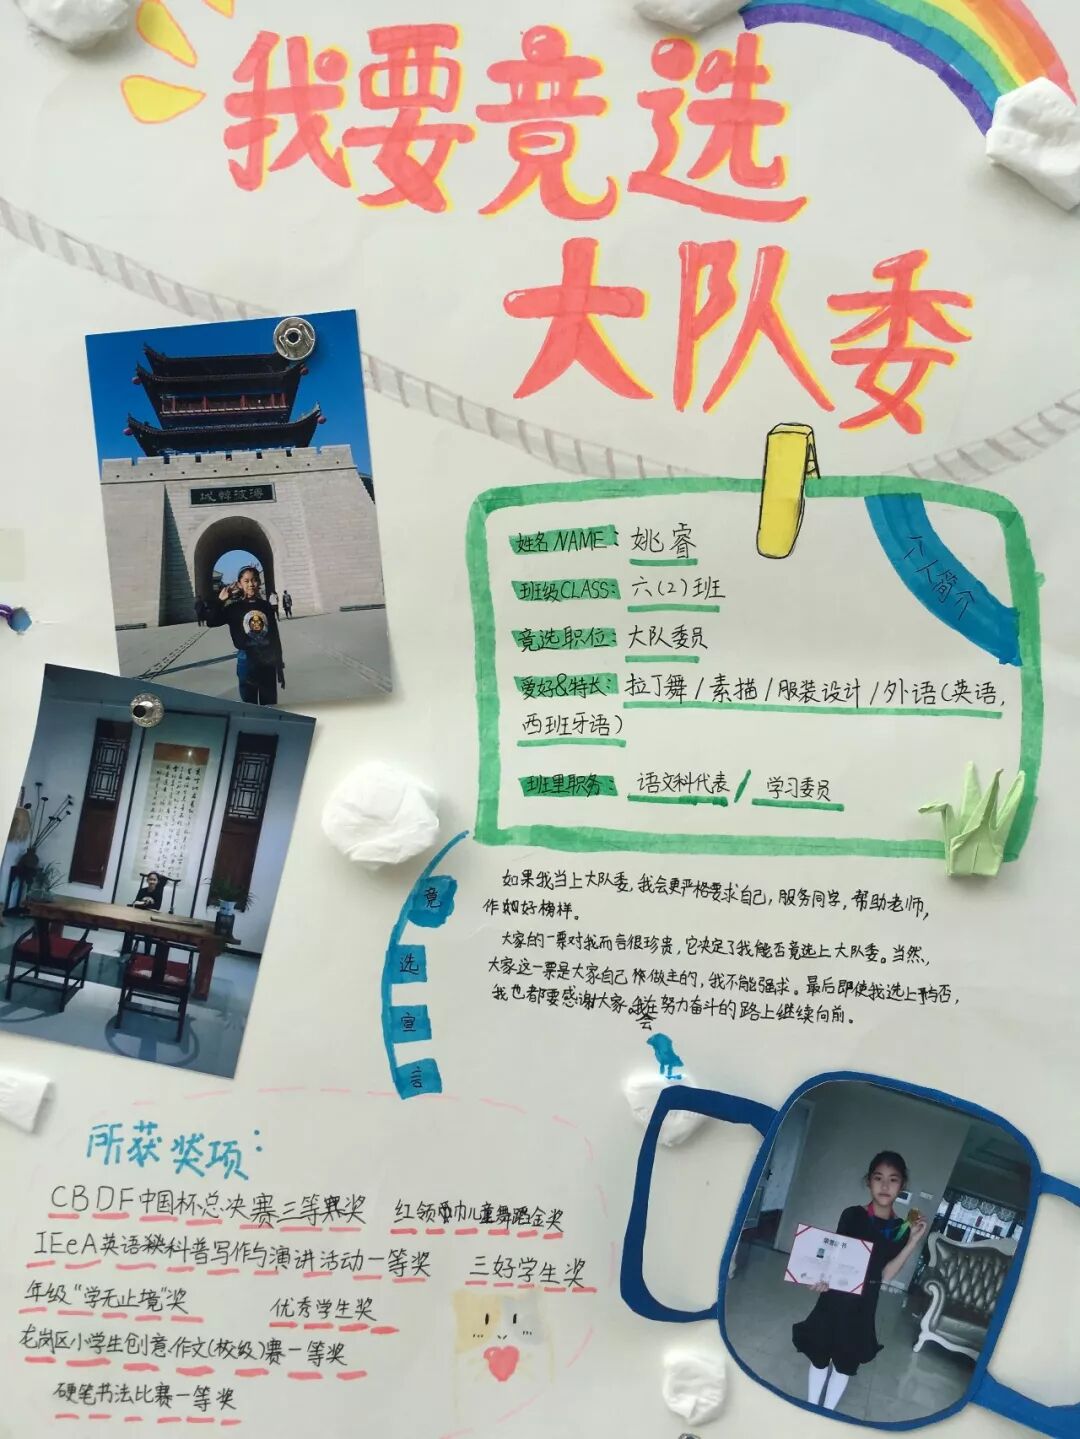 我要竞选
大队委
溥彼韓城
个人简介
姓名NAME：姚睿
班级CLASS：六(2)班
竞选职位：大队委员
爱好&特长：拉丁舞/素描/服装设计/外语(英语,
西班牙语)
班里职务：语文科代表/学习委员
竞选宣言
如果我当上大队委，我会更严格要求自己，服务同学，帮助老师，
作好榜样。
大家的一票对我而言很珍贵，它决定了我能否竟选上大队委。当然，
大家这一票是大家自己做主的，我不能强求。最后即使我选上与否，
我也都要感谢大家。我会在努力奋斗的路上继续向前。
所获奖项：
CBDF中国杯总决赛三等奖 红领巾儿童舞蹈金奖
IEeA英语科普写作与演讲活动一等奖 三好学生奖
年级“学无止境”奖 优秀学生奖
龙岗区小学生创意作文(校级)赛一等奖
硬笔书法比赛一等奖